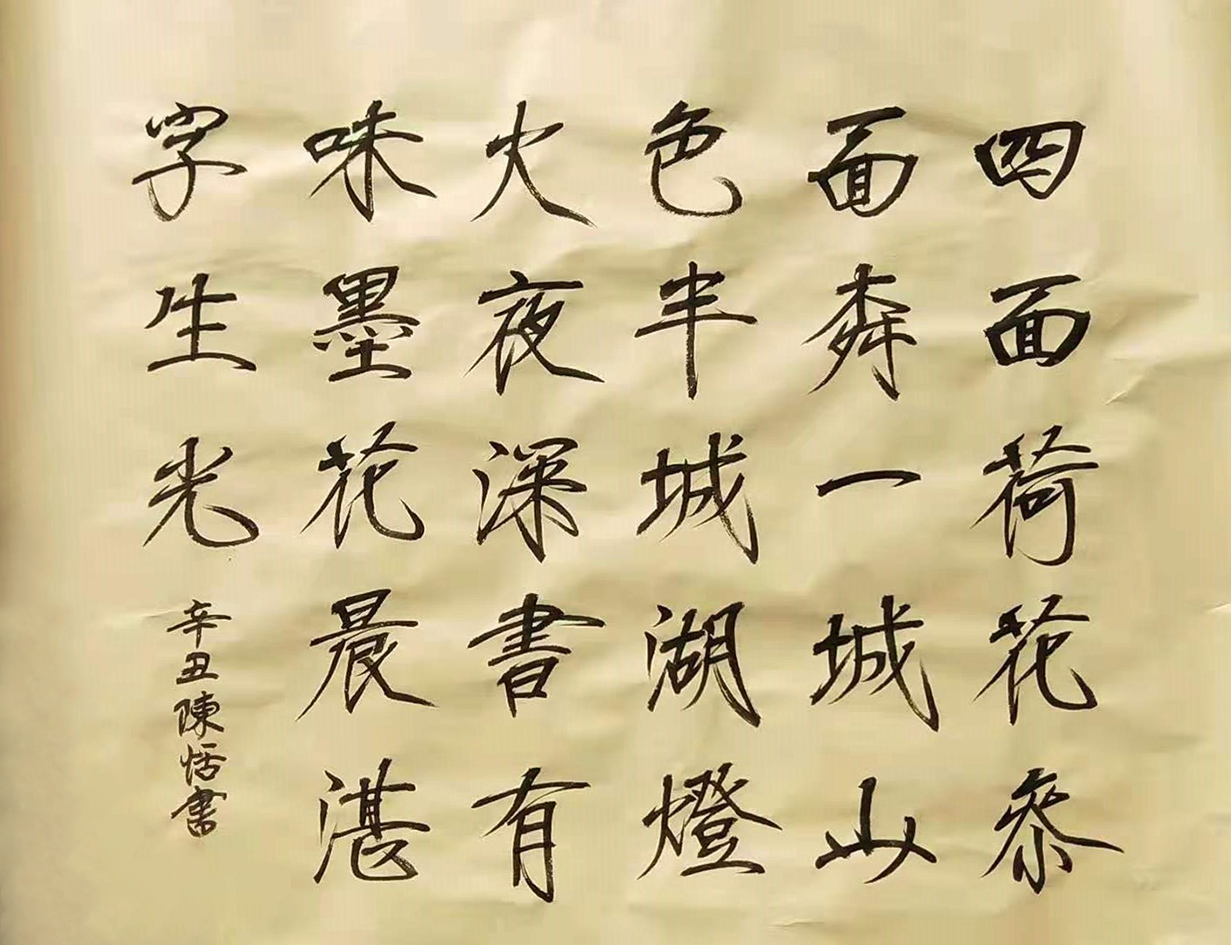 四面荷花参
面柳一城山
色半城湖燈
火夜深書有
味墨花晨湛
字生光
辛丑陳恬書